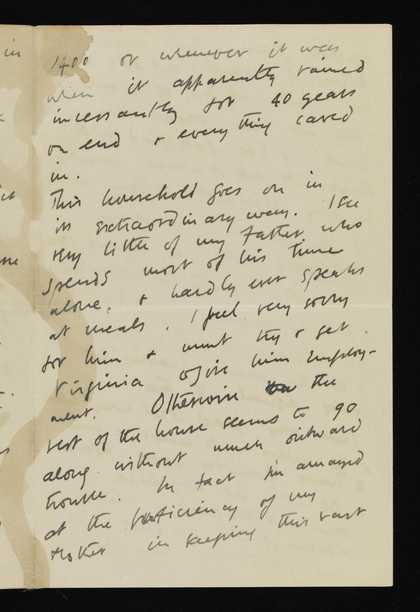 in
1400 or whenever it was
when it apparently rained
incessantly for 40 years
on end & everything caved
in.
This household goes on in
its extraordinary way. I see
very little of my Father who
spends most of his time
alone, & hardly ever speaks
at meals. I feel very sorry
for him & must try & get
Virginia to give him employ-
ment. Otherwise the
rest of the house seems to go
along without much outward
trouble. In fact I'm amazed
at the efficiency of my
Mother in keeping this vast